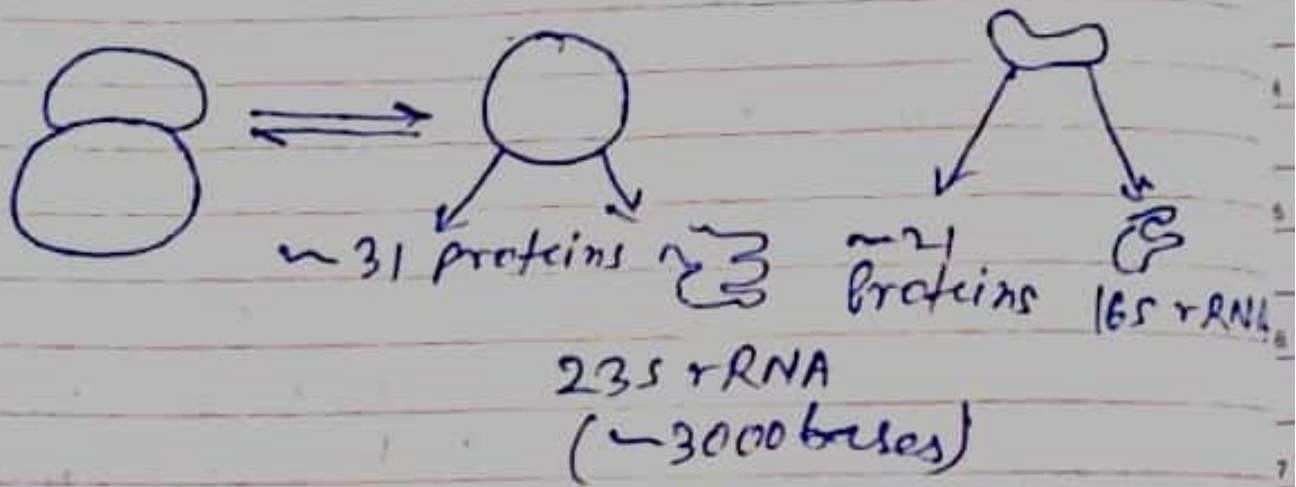 ~31 proteins
~21
proteins
16S rRNA
23S rRNA
(~3000 bases)